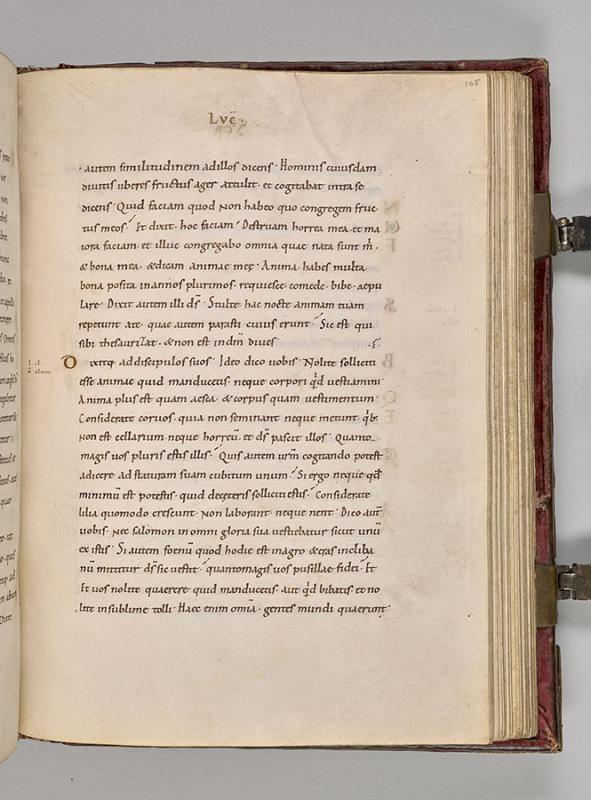 105
LVC̄
autem similitudinem ad illos dicens · Hominis cuiusdam
diuitis uberes fructus ager attulit · et cogitabat intra se
dicens · Quid faciam quod non habeo quo congregem fruc
tus meos · Et dixit · hoc faciam · Destruam horrea mea · et ma
iora faciam · et illuc congregabo omnia quae nata sunt m̄ ·
& bona mea · & dicam animae meę · Anima · habes multa
bona posita in annos plurimos · requiesce · comede · bibe · aepu
lare · Dixit autem illi dс̄ · Stulte hac nocte animam tuam
repetunt a te · quae autem parasti cuius erunt · Sic est qui
sibi thesaurizat · & non est in dm̄ diues
Dixitq; ad discipulos suos · Ideo dico uobis · Nolite solliciti
esse animae quid manducetis · neque corpori qd̄ uestiamini
Anima plus est quam aesca · & corpus quam uestimentum ·
Considerate coruos · quia non seminant neque metunt · qb;
non est cellarium neque horreū · et ds̄ pascit illos · Quanto
magis uos pluris estis illis · Quis autem ur̄m cogitando potest
adicere ad staturam suam cubitum unum · Si ergo neque qd̄
minimū est potestis · quid de ceteris solliciti estis · Considerate
lilia quomodo crescunt · Non laborant neque nent · Dico aut̄
uobis · Nec salomon in omni gloria sua uestiebatur sicut unū
ex istis · Si autem foenū quod hodie est in agro & cras in cliba
nū mittitur ds̄ sic uestit · quanto magis uos pusillae fidei · Et
Et uos nolite quaerere quid manducetis · aut qd̄ bibatis · et no
lite in sublime tolli · Haec enim omīa · gentes mundi quaerunt